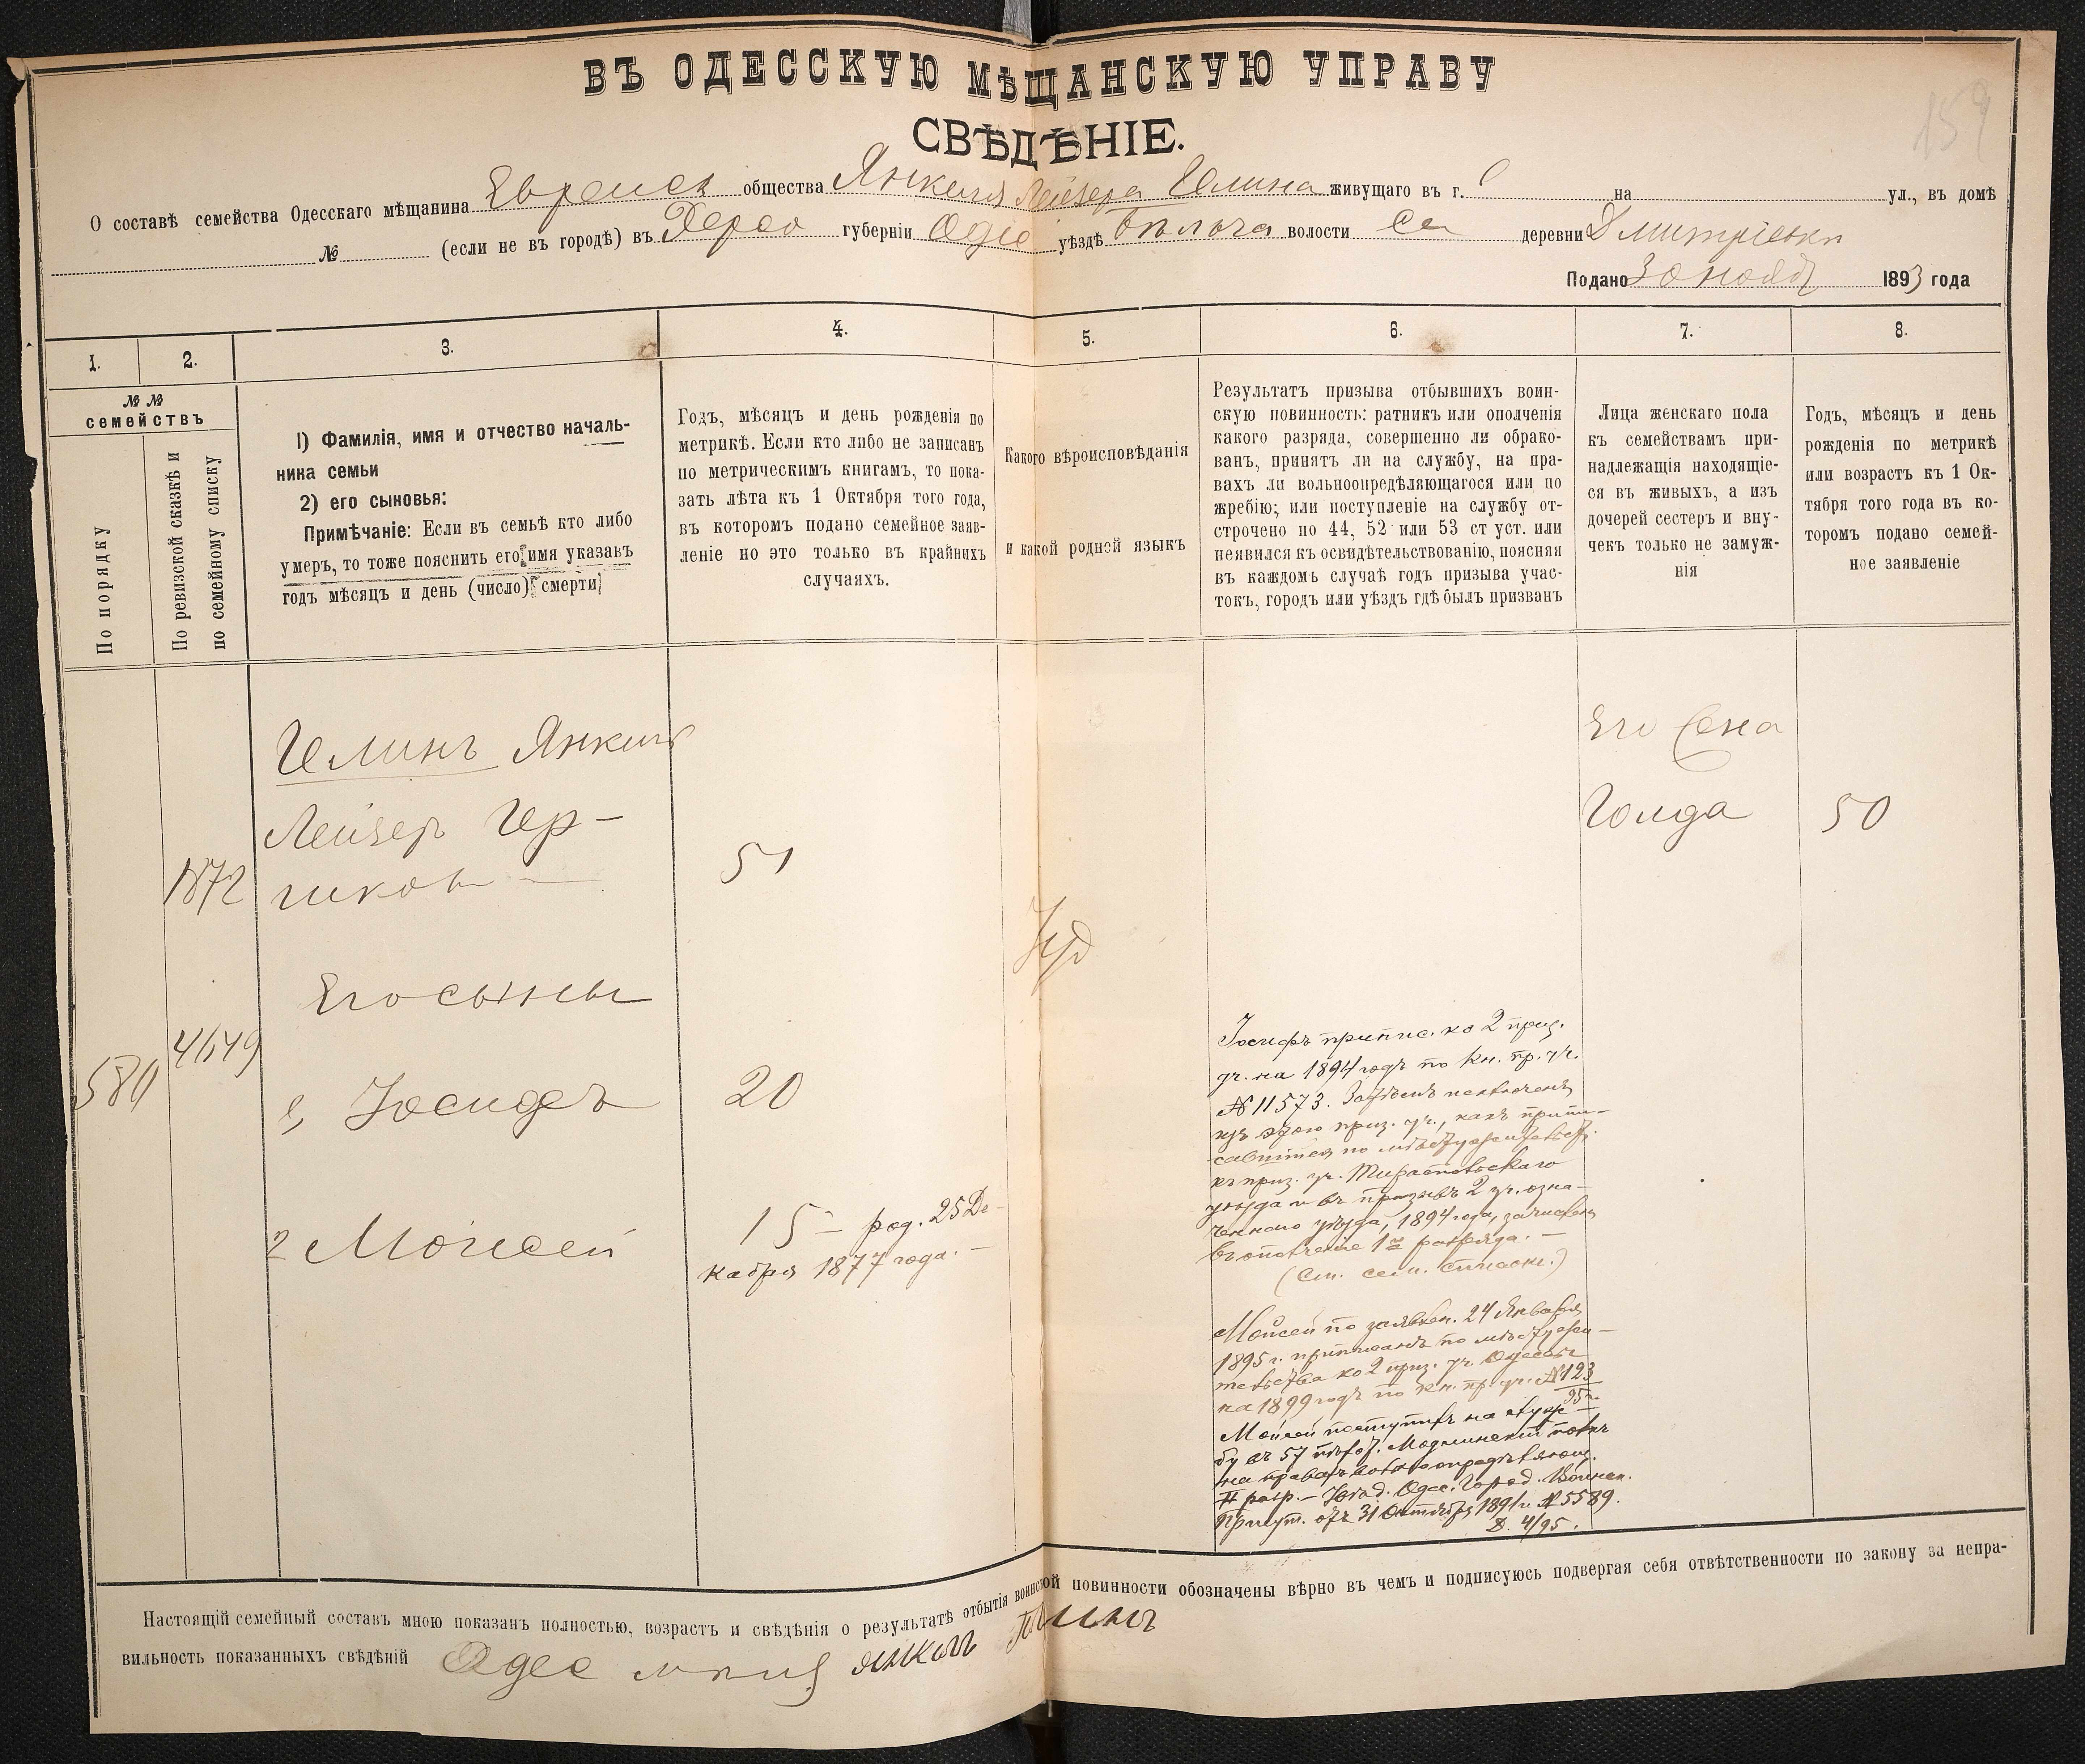 159
ВЪ ОДЕССКУЮ МѢЩАНСКУЮ УПРАВУ
СВѢДѢНІЕ.
О составѣ семейства Одесскаго мѣщанина Евреиск общества Янкеля Лейзера Гелина живущаго въ г. О на ул., въ домѣ
№ (если не въ городѣ) въ Херсо губерніи Одес уѣздѣ Бѣляча волости Се деревни Дмитріевки
Подано 30 нояб 1893 года
1. 2. 3. 4. 5. 6. 7. 8.
№ №
семействъ
По порядку
По ревизской сказкѣ и
по семейному списку
1) Фамилія, имя и отчество началь-
ника семьи
2) его сыновья:
Примѣчаніе: Если въ семьѣ кто либо
умеръ, то тоже пояснить его имя указавъ
годъ мѣсяцъ и день (число) смерти
Годъ, мѣсяцъ и день рожденія по
метрикѣ. Если кто либо не записанъ
по метрическимъ книгамъ, то пока-
зать лѣта къ 1 Октября того года,
въ которомъ подано семейное заяв-
леніе но это только въ крайнихъ
случаяхъ.
Какого вѣроисповѣданія
и какой родней языкъ
Результатъ призыва отбывшихъ воин-
скую повинность: ратникъ или ополченія
какого разряда, совершенно ли обрако-
ванъ, принятъ ли на службу, на пра-
вахъ ли вольноопредѣляющагося или по
жребію; или поступленіе на службу от-
строчено по 44, 52 или 53 ст уст. или
неявился къ освидѣтельствованію, поясняя
въ каждомъ случаѣ годъ призыва учас-
токъ, городъ или уѣздъ гдѣ былъ призванъ
Лица женскаго пола
къ семействамъ при-
надлежащія находящіе-
ся въ живыхъ, а изъ
дочерей сестеръ и вну-
чекъ только не замуж-
нія
Годъ, мѣсяцъ и день
рожденія по метрикѣ
или возрастъ къ 1 Ок-
тября того года въ ко-
торомъ подано семей-
ное заявленіе
Гелинъ Янкель
Лейзер Гер-
шков
1872
51
Его жена
Голда
50
Іуд
Его сыны
580
4649
1, Іосифъ
20
2 Мойсей
15 – род. 25 Де-
кабря 1877 года. –
Іосифъ припис. ко 2 приз.
уч. на 1894 годъ по кн. пр. уч.
№ 11573. Затѣмъ исключенъ
изъ этого приз. уч., какъ припи-
савшійся по мѣстужительств.
къ приз. уч. Тираспольскаго
уѣзда и въ призывъ 2 уч. озна-
ченнаго уѣзда, 1894 года, зачисленъ
въ ополченіе 1го разряда. –
(См. сем. списокъ.)
Мойсей по заявлен. 24 Января
1895 г. приписанъ по мѣстужи-
тельства ко 2 приз. уч. Одессы
на 1899 годъ по кн. пр. уч. № 123
95 г.
Мойсей поступилъ на служ-
бу въ 57 пѣхот. Модлинскій полкъ
на правахъ вольноопредѣляющ.
II разр. – Увѣд. Одес. Город. Воинск.
Присут. отъ 31 Октября 189 г. № 5589.
Д. 4/95.
Настоящій семейный составъ мною показанъ полностью, возрастъ и свѣдѣнія о результатѣ отбытія воинской повинности обозначены вѣрно въ чемъ и подписуюсь подвергая себя отвѣтственности по закону за непра-
вильность показанныхъ свѣдѣній Одес янкель